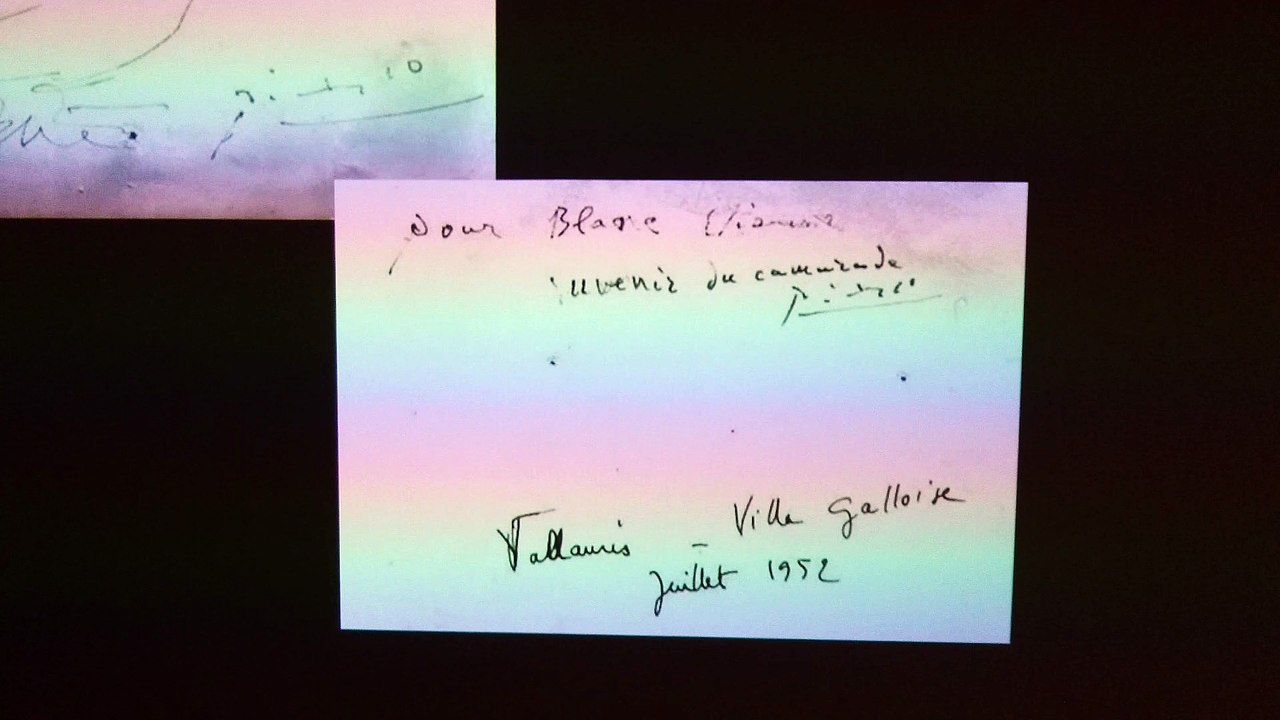 Picasso
pour Blaise Etienne
souvenir du camarade
Picasso
Vallauris - Villa Galloise
Juillet 1952